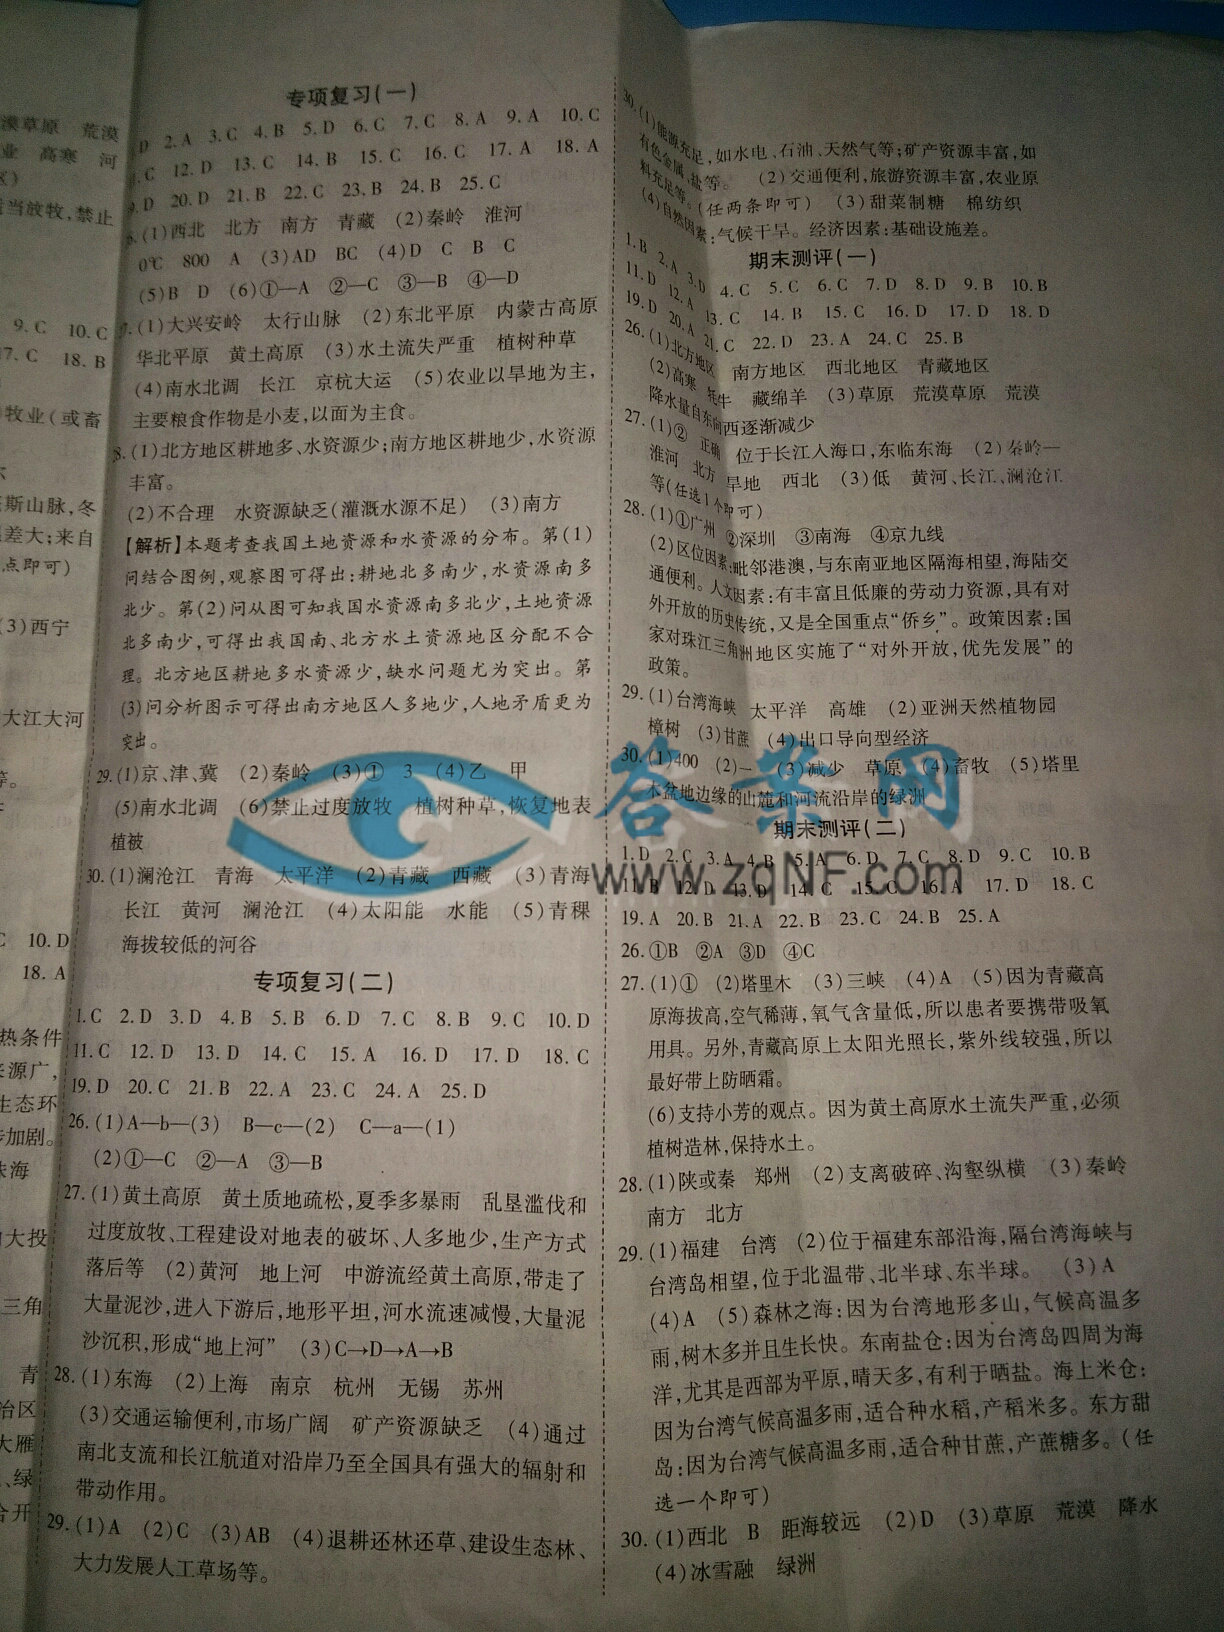 漠草原 荒漠
业 高寒 河
当放牧,禁止
9.C 10.C
17.C 18.B
牧业(或畜
斯山脉,冬
差大;来自
点即可)
(3)西宁
大江大河
等。
C 10.D
18.A
热条件
来源广,
生态环
加剧。
珠海
大投
三角
青
治区
大雁
、绿
合开
专项复习(一)
D 2.A 3.C 4.B 5.D 6.C 7.C 8.A 9.A 10.C
.C 12.D 13.C 14.B 15.C 16.C 17.A 18.A
9.D 20.D 21.B 22.C 23.B 24.B 25.C
6.(1)西北 北方 南方 青藏 (2)秦岭 淮河
0℃ 800 A (3)AD BC (4)D C B C
(5)B D (6)①—A ②—C ③—B ④—D
7.(1)大兴安岭 太行山脉 (2)东北平原 内蒙古高原
华北平原 黄土高原 (3)水土流失严重 植树种草
(4)南水北调 长江 京杭大运 (5)农业以旱地为主,
主要粮食作物是小麦,以面为主食。
8.(1)北方地区耕地多、水资源少;南方地区耕地少,水资源
丰富。
(2)不合理 水资源缺乏(灌溉水源不足) (3)南方
【解析】本题考查我国土地资源和水资源的分布。第(1)
问结合图例,观察图可得出:耕地北多南少,水资源南多
北少。第(2)问从图可知我国水资源南多北少,土地资源
北多南少,可得出我国南、北方水土资源地区分配不合
理。北方地区耕地多水资源少,缺水问题尤为突出。第
(3)问分析图示可得出南方地区人多地少,人地矛盾更为
突出。
29.(1)京、津、冀 (2)秦岭 (3)① 3 (4)乙 甲
(5)南水北调 (6)禁止过度放牧 植树种草,恢复地表
植被
30.(1)澜沧江 青海 太平洋 (2)青藏 西藏 (3)青海
长江 黄河 澜沧江 (4)太阳能 水能 (5)青稞
海拔较低的河谷
专项复习(二)
1.C 2.D 3.D 4.B 5.B 6.D 7.C 8.B 9.C 10.D
11.C 12.D 13.D 14.C 15.A 16.D 17.D 18.C
19.D 20.C 21.B 22.A 23.C 24.A 25.D
26.(1)A—b—(3) B—c—(2) C—a—(1)
(2)①—C ②—A ③—B
27.(1)黄土高原 黄土质地疏松,夏季多暴雨 乱垦滥伐和
过度放牧、工程建设对地表的破坏、人多地少,生产方式
落后等 (2)黄河 地上河 中游流经黄土高原,带走了
大量泥沙,进入下游后,地形平坦,河水流速减慢,大量泥
沙沉积,形成“地上河” (3)C→D→A→B
28.(1)东海 (2)上海 南京 杭州 无锡 苏州
(3)交通运输便利,市场广阔 矿产资源缺乏 (4)通过
南北支流和长江航道对沿岸乃至全国具有强大的辐射和
带动作用。
29.(1)A (2)C (3)AB (4)退耕还林还草、建设生态林、
大力发展人工草场等。
30.(1)能源充足,如水电、石油、天然气等;矿产资源丰富,如
有色金属、盐等。 (2)交通便利,旅游资源丰富,农业原
料充足等。(任两条即可) (3)甜菜制糖 棉纺织
(4)自然因素:气候干旱。经济因素:基础设施差。
期末测评(一)
1.B 2.A 3.D 4.C 5.C 6.C 7.D 8.D 9.B 10.B
11.D 12.A 13.C 14.B 15.C 16.D 17.D 18.D
19.D 20.A 21.C 22.D 23.A 24.C 25.B
26.(1)北方地区 南方地区 西北地区 青藏地区
(2)高寒 牦牛 藏绵羊 (3)草原 荒漠草原 荒漠
降水量自东向西逐渐减少
27.(1)② 正确 位于长江入海口,东临东海 (2)秦岭—
淮河 北方 旱地 西北 (3)低 黄河、长江、澜沧江
等(任选1个即可)
28.(1)①广州 ②深圳 ③南海 ④京九线
(2)区位因素:毗邻港澳,与东南亚地区隔海相望,海陆交
通便利。人文因素:有丰富且低廉的劳动力资源,具有对
外开放的历史传统,又是全国重点“侨乡”。政策因素:国
家对珠江三角洲地区实施了“对外开放,优先发展”的
政策。
29.(1)台湾海峡 太平洋 高雄 (2)亚洲天然植物园
樟树 (3)甘蔗 (4)出口导向型经济
30.(1)400 (2)一 (3)减少 草原 (4)畜牧 (5)塔里
木盆地边缘的山麓和河流沿岸的绿洲
期末测评(二)
1.D 2.C 3.A 4.B 5.A 6.D 7.C 8.D 9.C 10.B
11.B 12.D 13.D 14.C 15.C 16.A 17.D 18.C
19.A 20.B 21.A 22.B 23.C 24.B 25.A
26.①B ②A ③D ④C
27.(1)① (2)塔里木 (3)三峡 (4)A (5)因为青藏高
原海拔高,空气稀薄,氧气含量低,所以患者要携带吸氧
用具。另外,青藏高原上太阳光照长,紫外线较强,所以
最好带上防晒霜。
(6)支持小芳的观点。因为黄土高原水土流失严重,必须
植树造林,保持水土。
28.(1)陕或秦 郑州 (2)支离破碎、沟壑纵横 (3)秦岭
南方 北方
29.(1)福建 台湾 (2)位于福建东部沿海,隔台湾海峡与
台湾岛相望,位于北温带、北半球、东半球。 (3)A
(4)A (5)森林之海:因为台湾地形多山,气候高温多
雨,树木多并且生长快。东南盐仓:因为台湾岛四周为海
洋,尤其是西部为平原,晴天多,有利于晒盐。海上米仓:
因为台湾气候高温多雨,适合种水稻,产稻米多。东方甜
岛:因为台湾气候高温多雨,适合种甘蔗,产蔗糖多。(任
选一个即可)
30.(1)西北 B 距海较远 (2)D (3)草原 荒漠 降水
(4)冰雪融 绿洲
答案网
www.zqNF.com